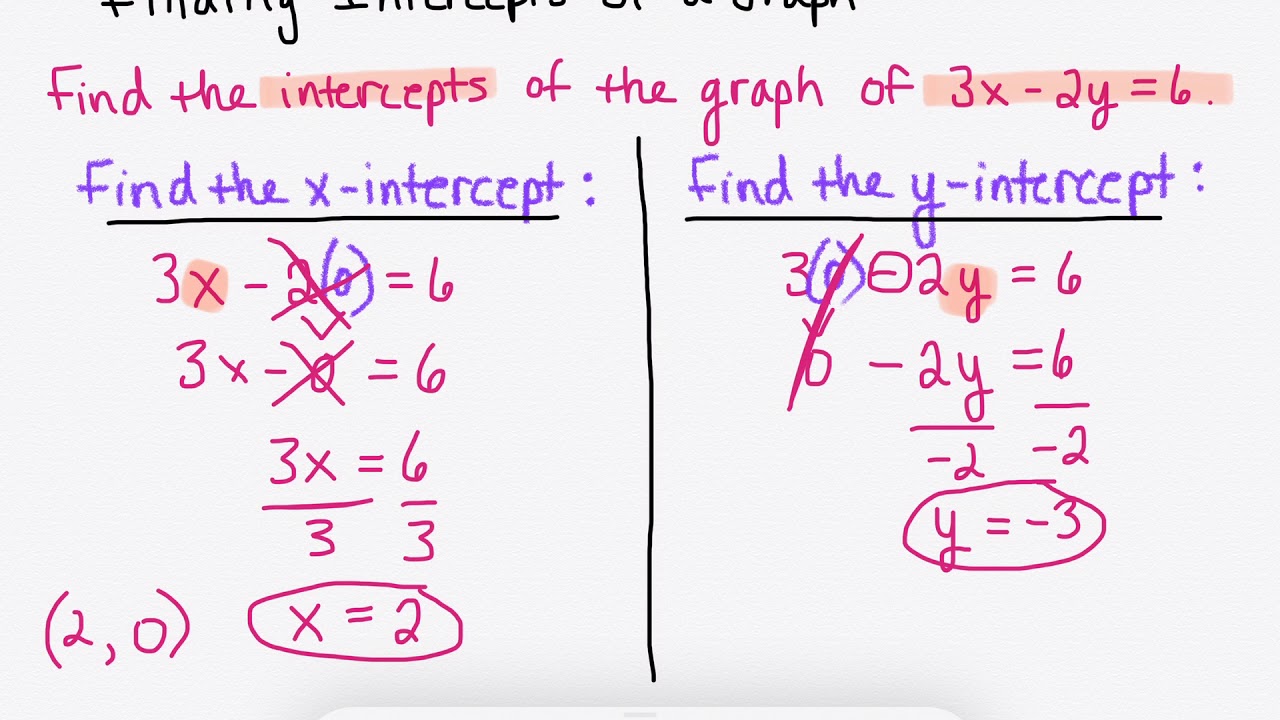 Finding Intercepts of a Graph
Find the intercepts of the graph of 3x - 2y = 6.
Find the x-intercept:
3x - 2(0) = 6
3x - 0 = 6
3x = 6
3 3
x = 2
(2, 0)
Find the y-intercept:
3(0) - 2y = 6
0 - 2y = 6
-2 -2
y = -3